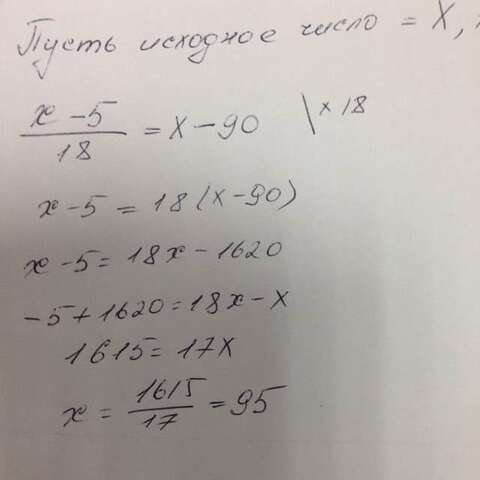 Пусть исходное число = X,
x - 5 / 18 = X - 90 \ × 18
x - 5 = 18 (x - 90)
x - 5 = 18x - 1620
-5 + 1620 = 18x - x
1615 = 17x
x = 1615 / 17 = 95